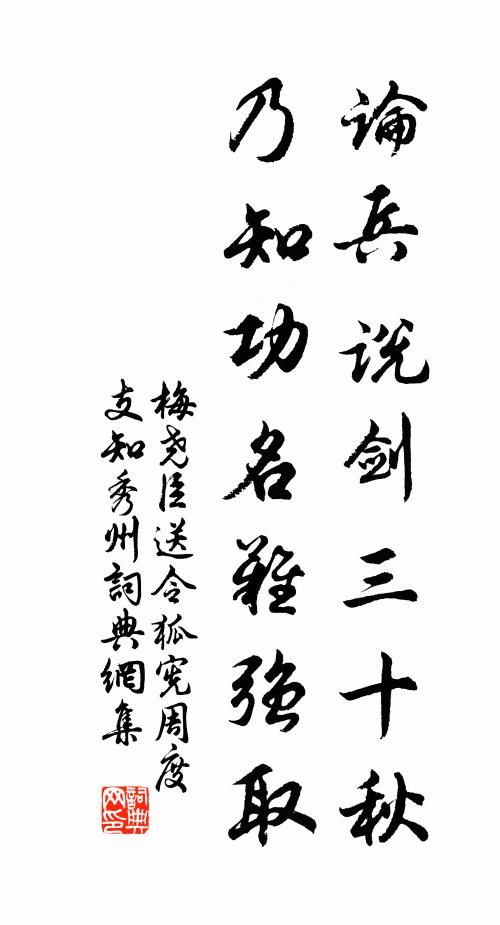 論兵说剑三十秋
乃知功名難強取
梅尧臣送令狐宪周度
支知秀州詞典網集
詞典
网印